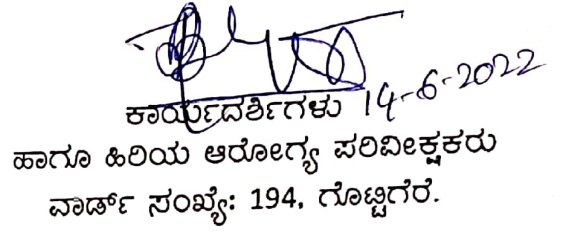 ಕಾರ್ಯದರ್ಶಿಗಳು 14-6-2022
ಹಾಗೂ ಹಿರಿಯ ಆರೋಗ್ಯ ಪರಿವೀಕ್ಷಕರು
ವಾರ್ಡ್ ಸಂಖ್ಯೆ: 194, ಗೊಟ್ಟಿಗೆರೆ.